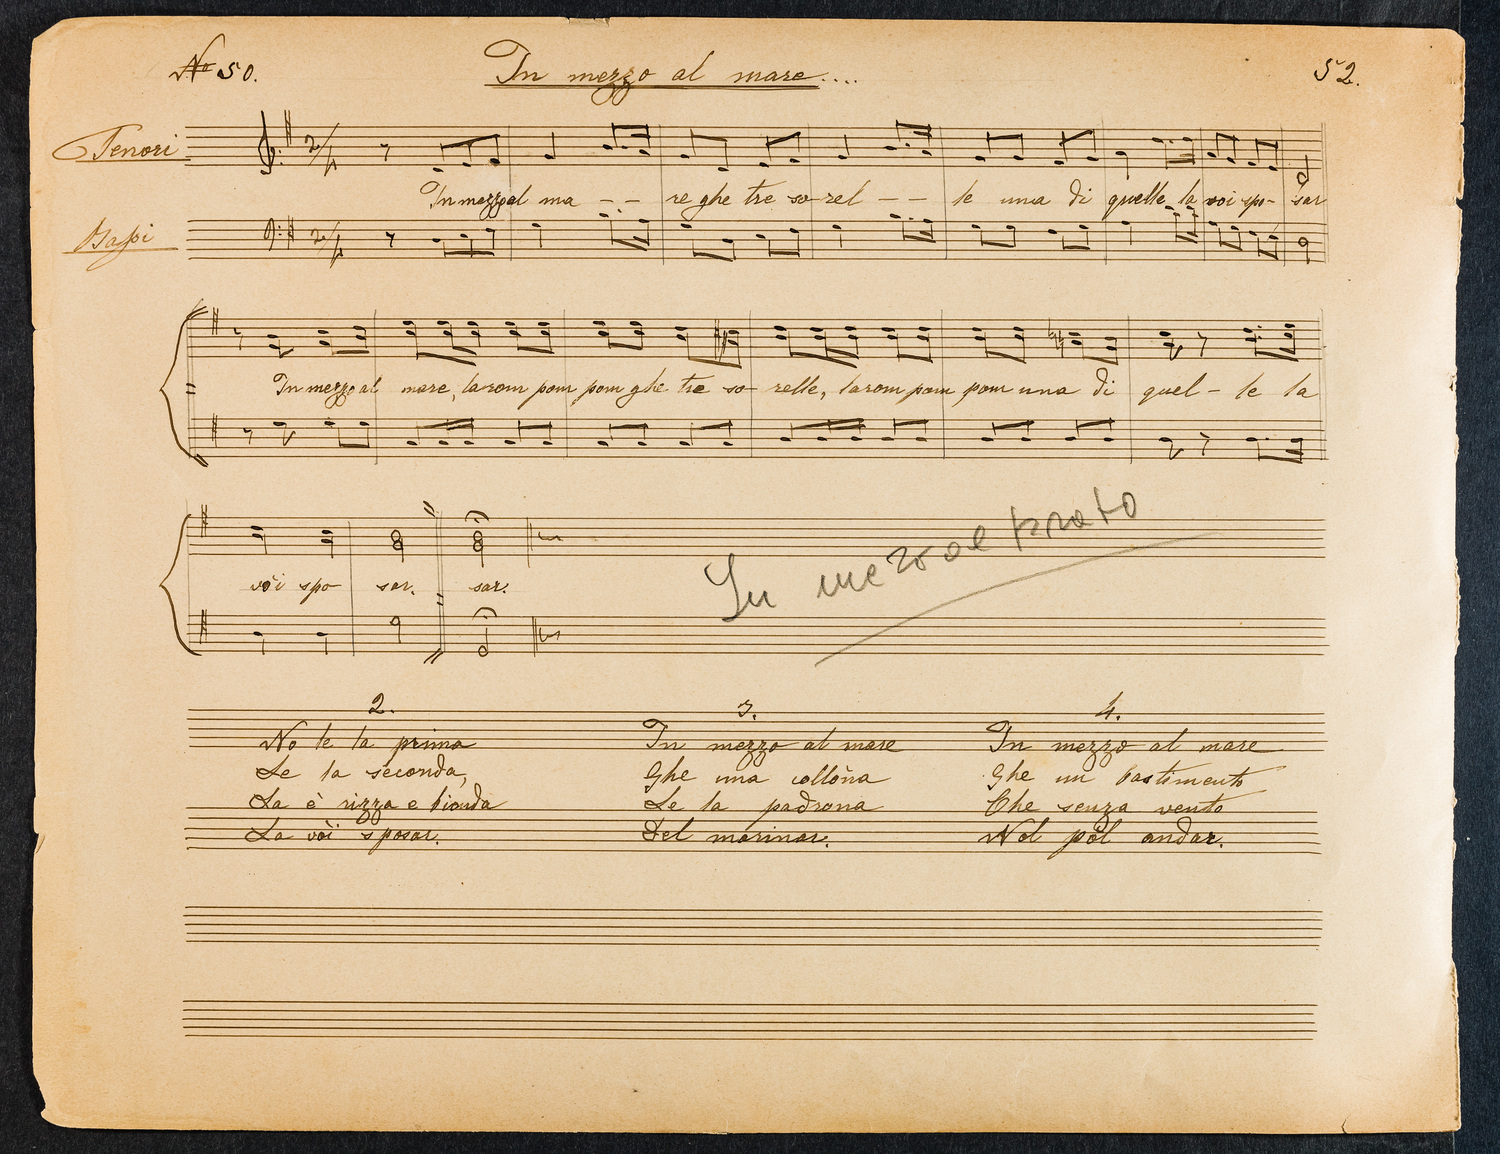 No 50.
In mezzo al mare....
52.
Tenori
In mezzo al ma - - re ghe tre so-rel - - le una di quelle la voi spo- sar
Bassi
In mezzo al mare, larom pom pom ghe tre so- relle, larom pom pom una di quel - le la
vöi spo sar. sar.
In mezo al prato
2.
No le la prima
Le la seconda,
La è rizza e bionda
La vöi sposar.
3.
In mezzo al mare
Ghe una collòna
Le la padrona
Del marinar.
4.
In mezzo al mare
Ghe un bastimento
Che senza vento
Nol pöl andar.